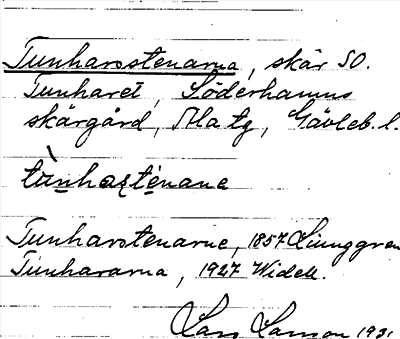 Tunharstenarna, skär SO.
Tunharet, Söderhamns
skärgård, Ala tg, Gävleb. l.
tùnhastenane
Tunharstenarne, 1857 Ljunggren
Tunhararna, 1927 Widell.
Lars Larson 1931